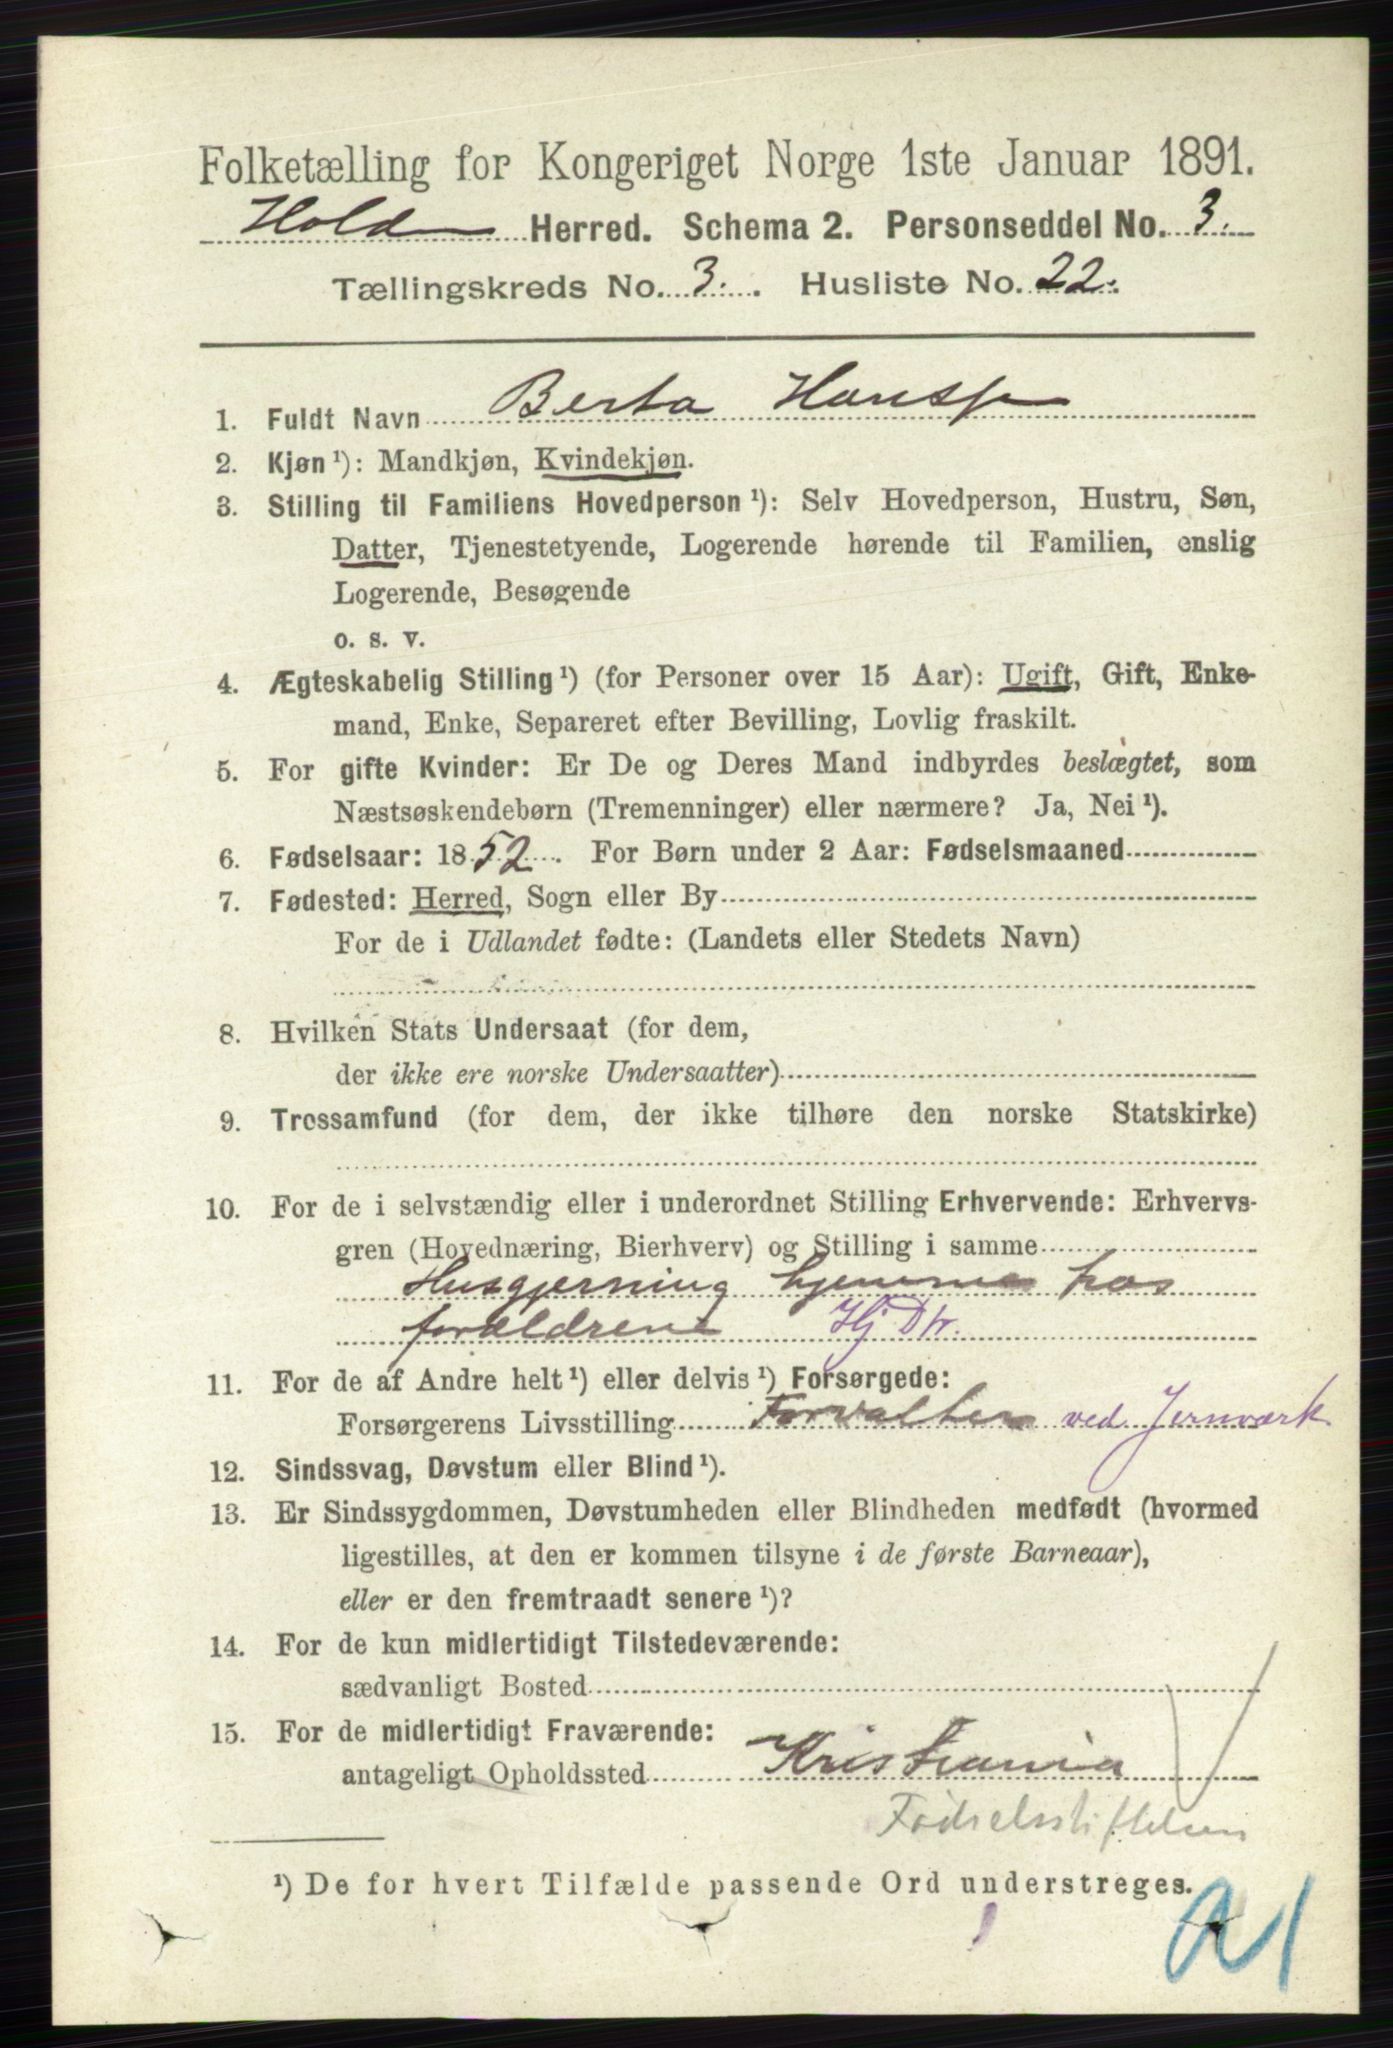 Folketælling for Kongeriget Norge 1ste Januar 1891.
Holden Herred. Schema 2. Personseddel No. 3.
Tællingskreds No. 3. Husliste No. 22.
1. Fuldt Navn Berta Hanssen
2. Kjøn ¹): Mandkjøn, Kvindekjøn.
3. Stilling til Familiens Hovedperson ¹): Selv Hovedperson, Hustru, Søn,
Datter, Tjenestetyende, Logerende hørende til Familien, enslig
Logerende, Besøgende
o. s. v.
4. Ægteskabelig Stilling ¹) (for Personer over 15 Aar): Ugift, Gift, Enke-
mand, Enke, Separeret efter Bevilling, Lovlig fraskilt.
5. For gifte Kvinder: Er De og Deres Mand indbyrdes beslægtet, som
Næstsøskendebørn (Tremenninger) eller nærmere? Ja, Nei ¹).
6. Fødselsaar: 1852. For Børn under 2 Aar: Fødselsmaaned
7. Fødested: Herred, Sogn eller By
For de i Udlandet fødte: (Landets eller Stedets Navn)
8. Hvilken Stats Undersaat (for dem,
der ikke ere norske Undersaatter)
9. Trossamfund (for dem, der ikke tilhøre den norske Statskirke)
10. For de i selvstændig eller i underordnet Stilling Erhvervende: Erhvervs-
gren (Hovednæring, Bierhverv) og Stilling i samme
Husgjerning hjemme hos
forældrene Hj Dtr.
11. For de af Andre helt ¹) eller delvis ¹) Forsørgede:
Forsørgerens Livsstilling Forvalter ved Jernværk
12. Sindssvag, Døvstum eller Blind ¹).
13. Er Sindssygdommen, Døvstumheden eller Blindheden medfødt (hvormed
ligestilles, at den er kommen tilsyne i de første Barneaar),
eller er den fremtraadt senere ¹)?
14. For de kun midlertidigt Tilstedeværende:
sædvanligt Bosted
15. For de midlertidigt Fraværende:
antageligt Opholdssted Kristiania
Fødselsstiftelsen
¹) De for hvert Tilfælde passende Ord understreges.